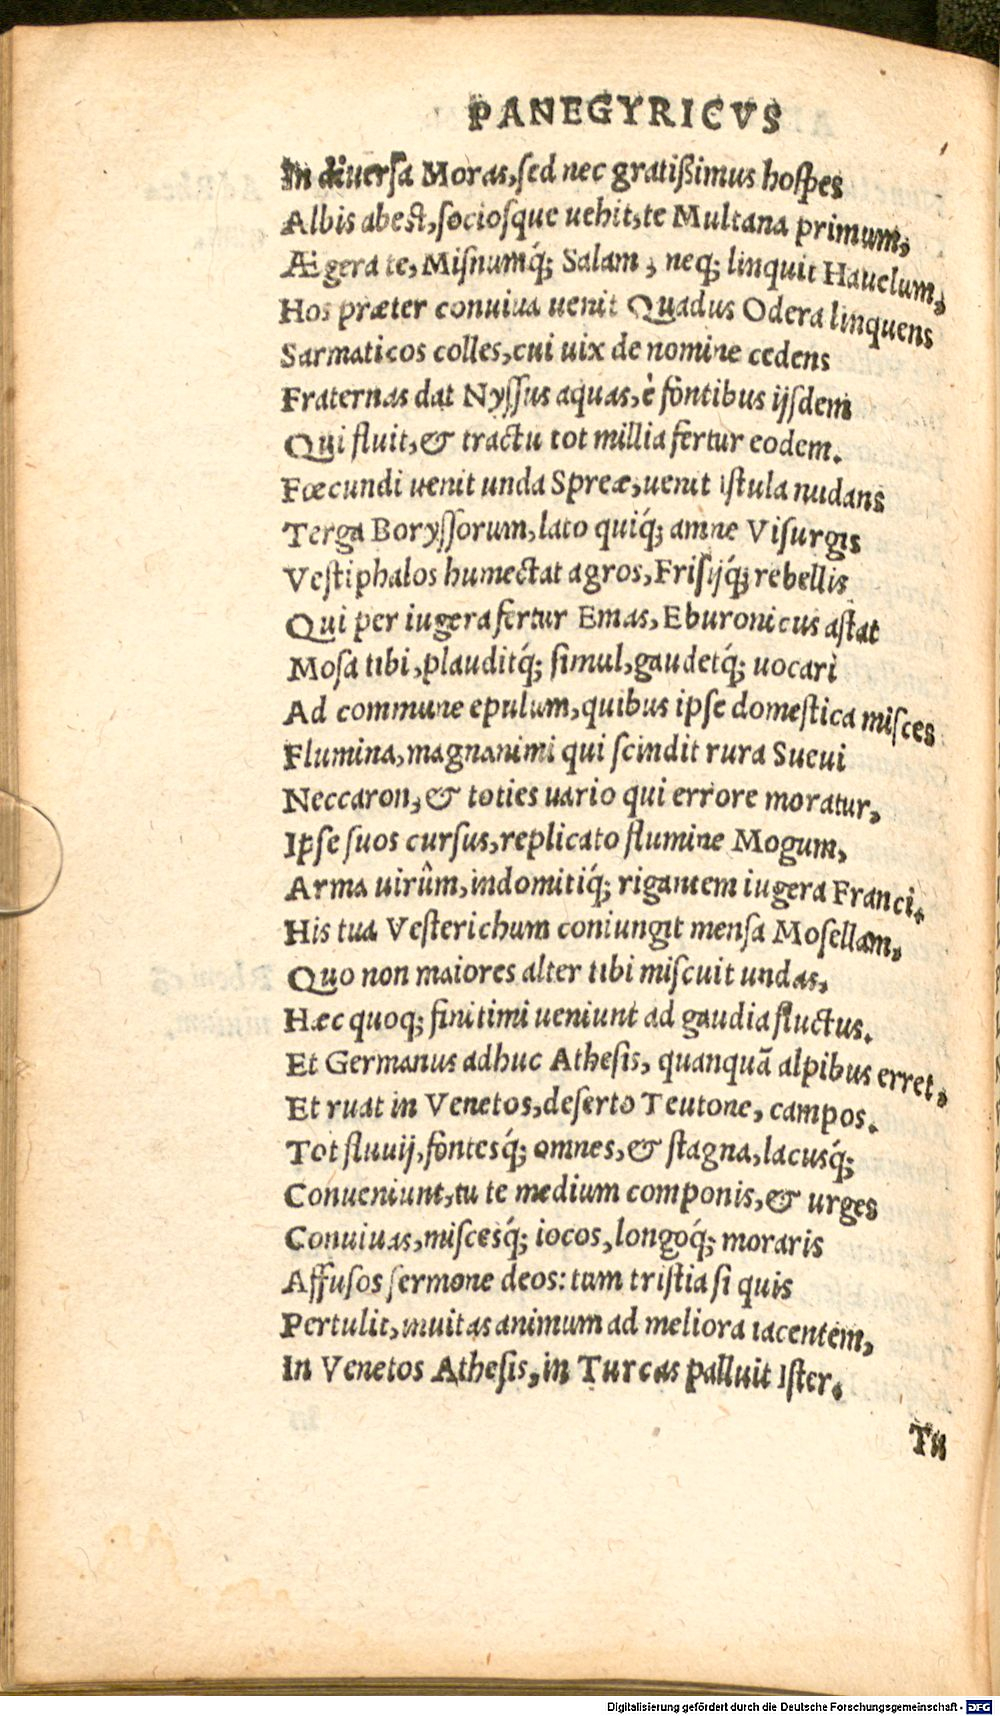 PANEGYRICVS
In diuersa Moras,sed nec gratißimus hospes
Albis abest,sociosque uehit,te Multana primum,
Ægera te, Misnumq́; Salam, neq; linquit Hauelum,
Hos præter conuiua uenit Quadus Odera linquens
Sarmaticos colles,cui uix de nomine cedens
Fraternas dat Nyssus aquas,è fontibus ijsdem
Qui fluit,& tractu tot millia fertur eodem.
Fœcundi uenit unda Spreæ,uenit Istula nudans
Terga Boryssorum,lato quiq́; amne Visurgis
Vestiphalos humectat agros,Frisijq́; rebellis
Qui per iugera fertur Emas, Eburonicus astat
Mosa tibi,plauditq́; simul,gaudetq́; uocari
Ad commune epulum,quibus ipse domestica misces
Flumina,magnanimi qui scindit rura Sueui
Neccaron,& toties uario qui errore moratur,
Ipse suos cursus,replicato flumine Mogum,
Arma uirûm,indomitiq́; rigantem iugera Franci.
His tua Vesterichum coniungit mensa Mosellam,
Quo non maiores alter tibi miscuit undas,
Hæc quoq; finitimi ueniunt ad gaudia fluctus.
Et Germanus adhuc Athesis, quanquā alpibus erret,
Et ruat in Venetos,deserto Teutone, campos.
Tot fluuij,fontesq́; omnes,& stagna,lacusq́;
Conueniunt,tu te medium componis,& urges
Conuiuas,miscesq́; iocos,longoq́; moraris
Affusos sermone deos: tum tristia si quis
Pertulit,inuitas animum ad meliora iacentem,
In Venetos Athesis,in Turcas palluit Ister.
Tu
Digitalisierung gefördert durch die Deutsche Forschungsgemeinschaft - DFG